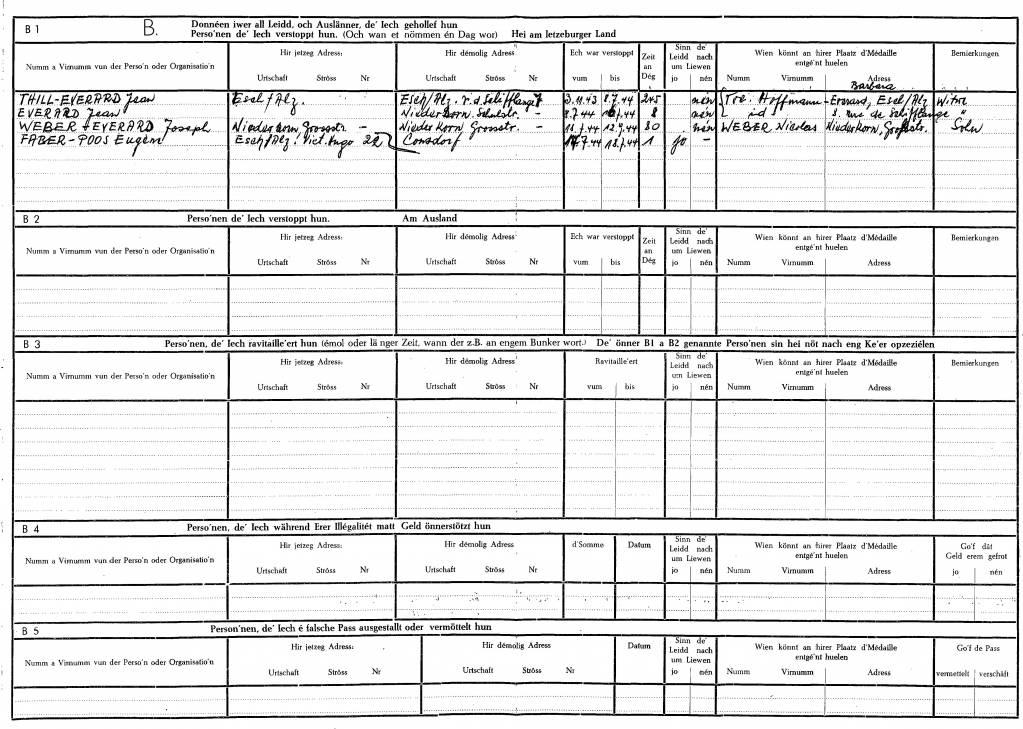 B 1 B. Donnéen iwer all Leidd, och Auslänner, de' Iech gehollef hun
Perso'nen de' Iech verstoppt hun. (Och wan et nömmen én Dag wor) Hei am letzeburger Land
Numm a Virnumm vun der Perso'n oder Organisatio'n Hir jetzeg Adress: Hir démolig Adress Ech war verstoppt Zeit an Dég Sinn de' Leidd nach um Liewen Wien könnt an hirer Plaatz d'Médaille entgé'nt huelen Bemierkungen
Urtschaft Ströss Nr Urtschaft Ströss Nr vum bis jo nén Numm Virnumm Adress
Barbara
THILL-EVERARD Jean Esch/Alz. Esch/Alz. r. d. Schifflange 3.11.43 8.7.44 245 nén Hoffmann-Everard, Esch/Alz
EVERARD Jean Niederkorn. 8.7.44 8 nén id rue de Schifflange "
WEBER-EVERARD Joseph Niederkorn, Grosstr. - Niederkorn Grosstr. - 12.9.44 nén WEBER Nicolas Niederkorn, Sohn
FABER-POOS Eugen Esch/Alz. Vict. Hugo 22 Consdorf 18.7.44 1 jo -
B 2 Perso'nen de' Iech verstoppt hun. Am Ausland
Numm a Virnumm vun der Perso'n oder Organisatio'n Hir jetzeg Adress: Hir démolig Adress Ech war verstoppt Zeit an Dég Sinn de' Leidd nach um Liewen Wien könnt an hirer Plaatz d'Médaille entgé'nt huelen Bemierkungen
Urtschaft Ströss Nr Urtschaft Ströss Nr vum bis jo nén Numm Virnumm Adress
B 3 Perso'nen, de' Iech ravitaille'ert hun (émol oder länger Zeit, wann der z.B. an engem Bunker wort.) De' önner B1 a B2 genannte Perso'nen sin hei nöt nach eng Ke'er opzezielen
Numm a Virnumm vun der Perso'n oder Organisatio'n Hir jetzeg Adress: Hir démolig Adress Ravitaille'ert Sinn de' Leidd nach um Liewen Wien könnt an hirer Plaatz d'Médaille entgé'nt huelen Bemierkungen
Urtschaft Ströss Nr Urtschaft Ströss Nr vum bis jo nén Numm Virnumm Adress
B 4 Perso'nen, de' Iech während Erer Illégalitét matt Geld önnerstötzt hun
Numm a Virnumm vun der Perso'n oder Organisatio'n Hir jetzeg Adress: Hir démolig Adress d'Somme Datum Sinn de' Leidd nach um Liewen Wien könnt an hirer Plaatz d'Médaille entgé'nt huelen Go'f dät Geld erem gefrot
Urtschaft Ströss Nr Urtschaft Ströss Nr jo nén Numm Virnumm Adress jo nén
B 5 Person'nen, de' Iech é falsche Pass ausgestallt oder vermöttelt hun
Numm a Virnumm vun der Perso'n oder Organisatio'n Hir jetzeg Adress: Hir démolig Adress Datum Sinn de' Leidd nach um Liewen Wien könnt an hirer Plaatz d'Médaille entgé'nt huelen Go'f de Pass
Urtschaft Ströss Nr Urtschaft Ströss Nr jo nén Numm Virnumm Adress vermettelt verschäft